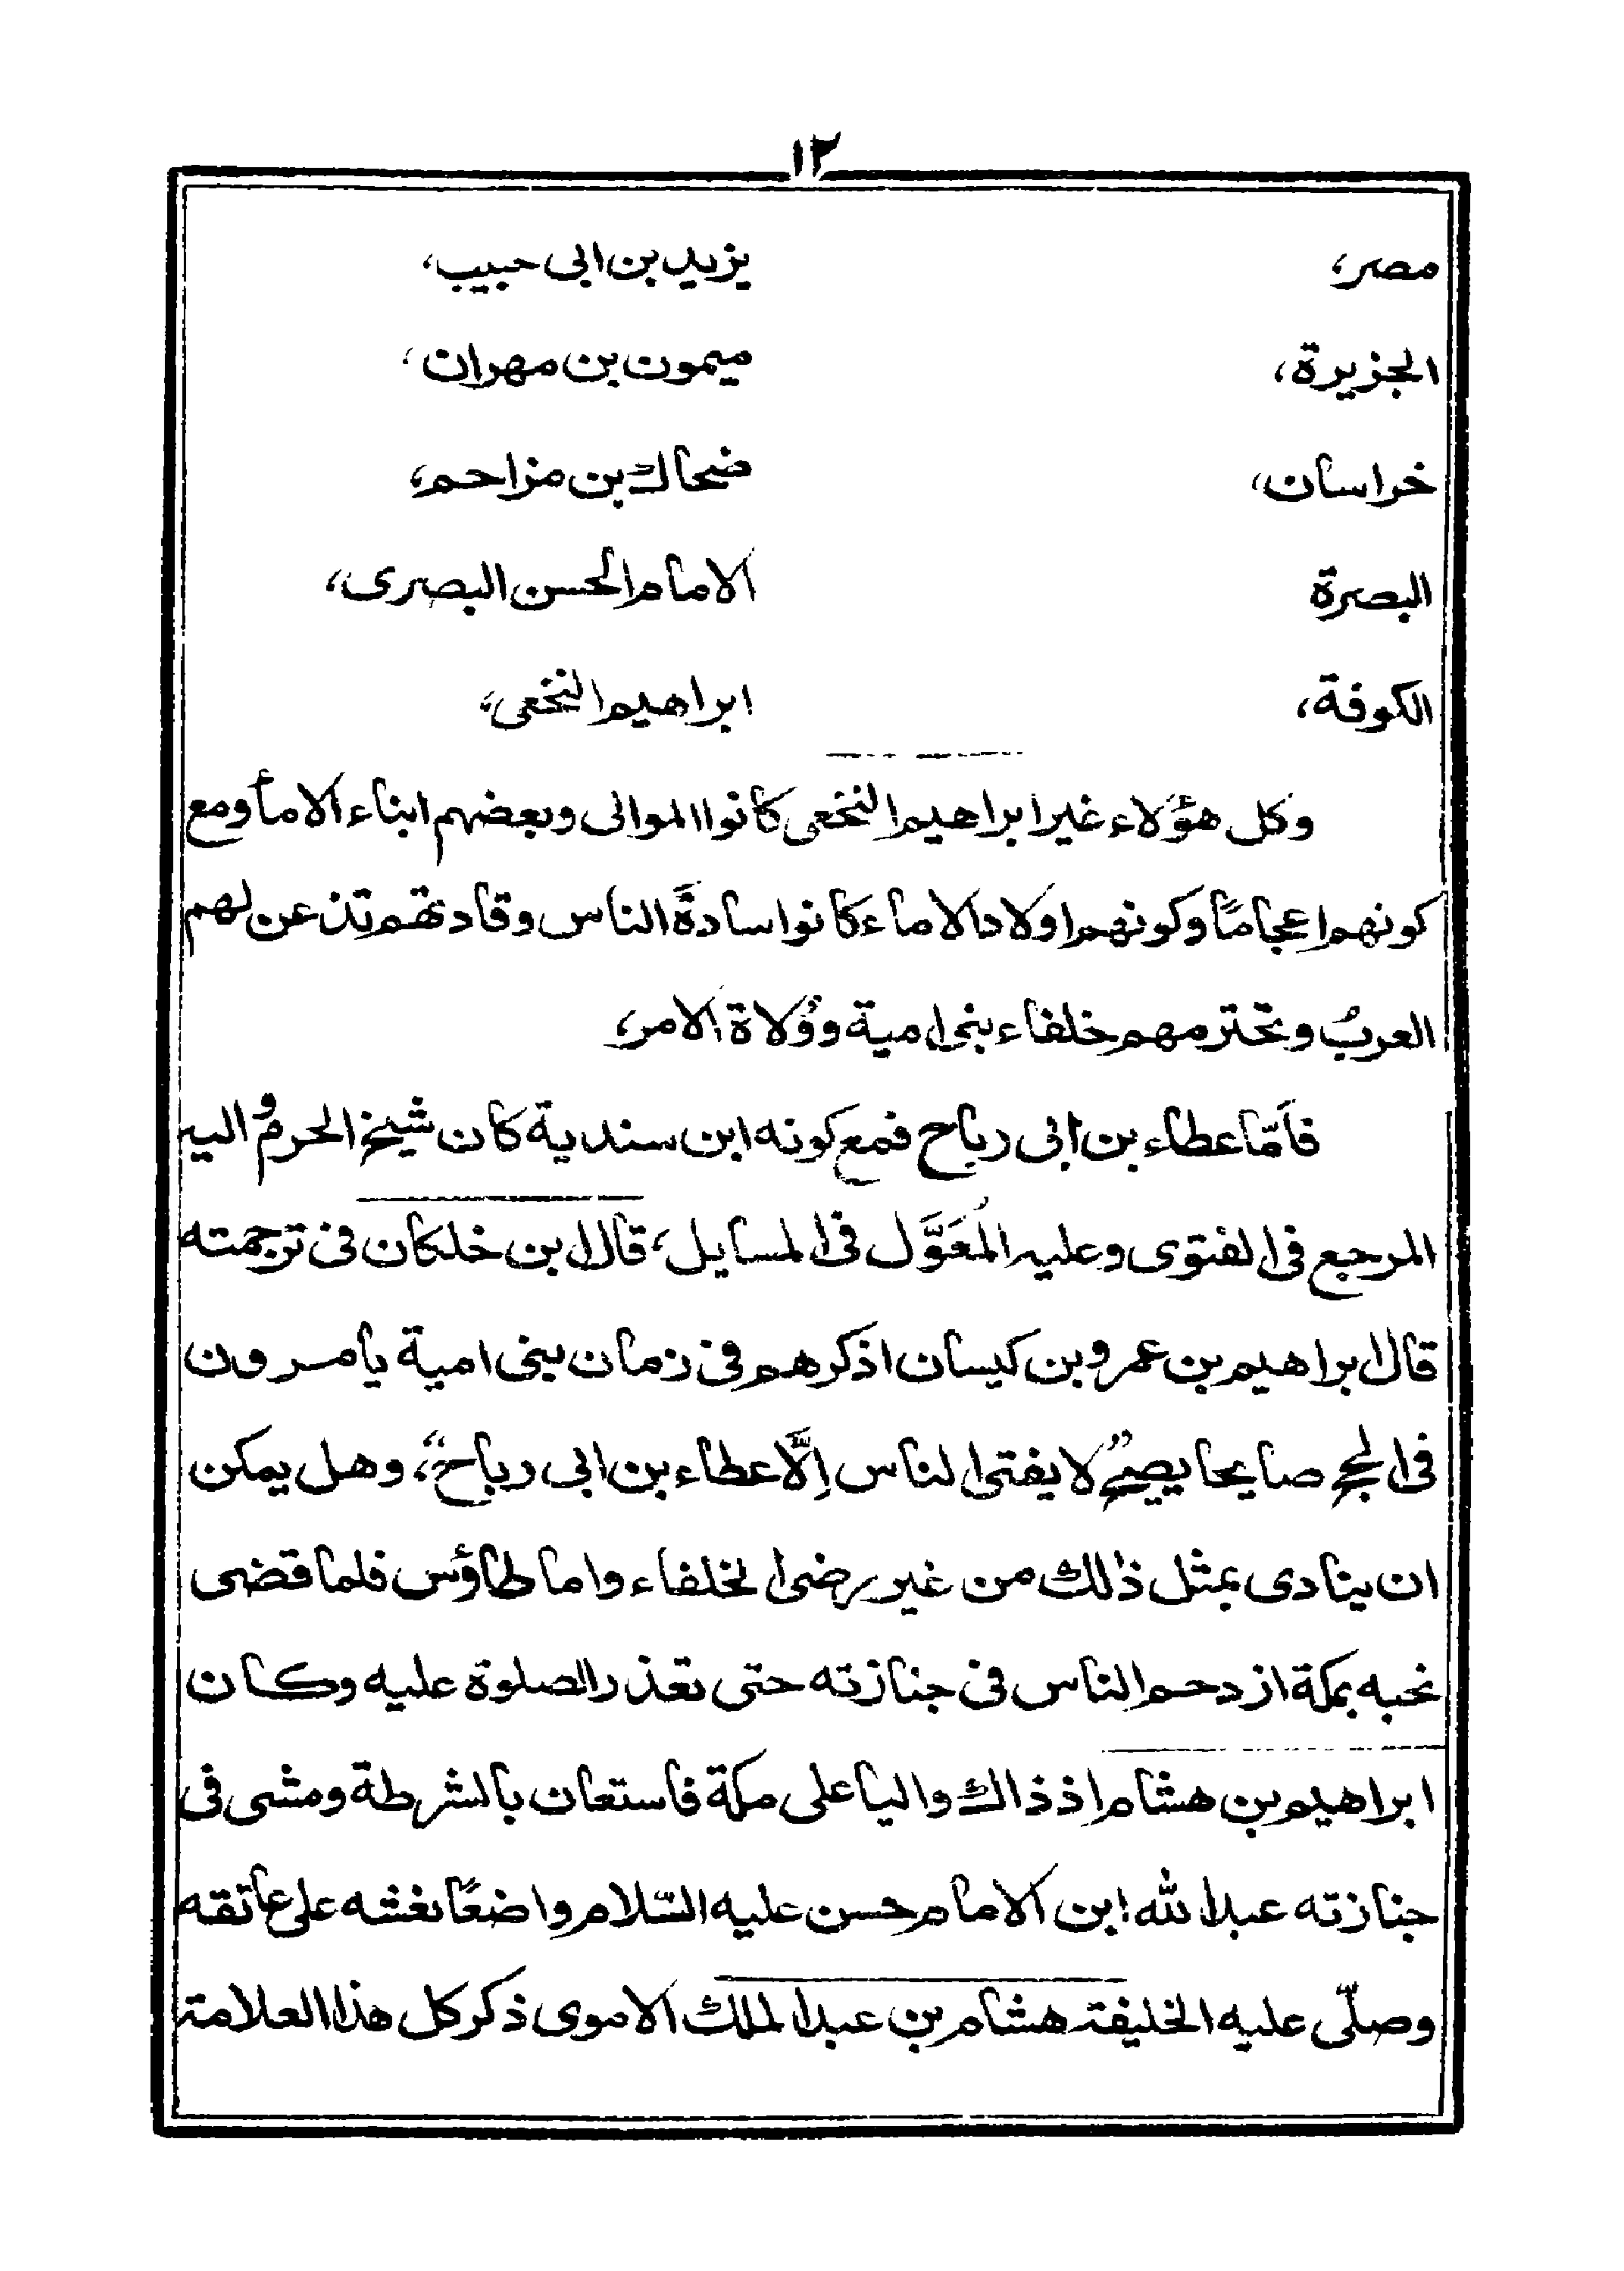 ١٢
مصر، يزيد بن ابى حبيب،
الجزيرة، ميمون بن مهران،
خراسان، ضحاك بن مزاحم،
البصرة الامام الحسن البصرى،
الكوفة، ابراهيم النخعى،
وكل هؤلاء غير ابراهيم النخعى كانوا الموالى وبعضهم ابناء الامأ ومع
كونهم اعجامًا وكونهم اولاد الاماء كانوا سادةَ الناس وقادتهم تذعن لهم
العربُ وتحترمهم خلفاء بنى امية ووُلاة الامر،
فأمّا عطاء بن ابى رباح فمع كونه ابن سندية كان شيخ الحرم واليه
المرجع فى الفتوى وعليه المُعَوَّل فى المسايل، قال ابن خلكان فى ترجمته
قال ابراهيم بن عمرو بن كيسان اذكرهم فى زمان بنى امية يأمرون
فى الحج صايحا يصيح "لا يفتى الناس اِلّا عطاء بن ابى رباح"، وهل يمكن
ان ينادى بمثل ذالك من غير رضى الخلفاء واما طاؤس فلما قضى
نحبه بمكة ازدحم الناس فى جنازته حتى تعذر الصلوة عليه وكان
ابراهيم بن هشام اذ ذاك واليا على مكة فاستعان بالشرطة ومشى فى
جنازته عبد الله ابن الامام حسن عليه السّلام واضعًا نعشه على عاتقه
وصلّى عليه الخليفة هشام بن عبد الملك الاموى ذكر كل هذا العلامة